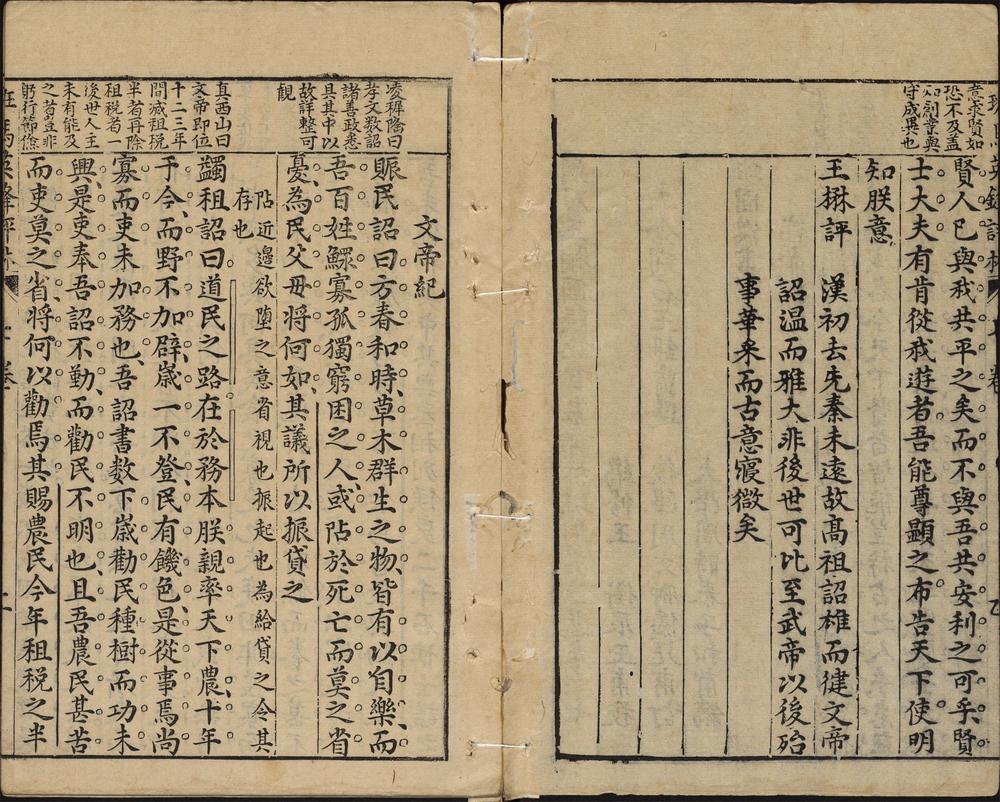 意求賢如
恐不及蓋
知創業與
守成異也
賢人已與我共平之矣而不與吾共安利之可乎賢
士大夫有肯從我遊者吾能尊顯之布告天下使明
知朕意
王楙評
漢初去先秦未遠故高祖詔雄而健文帝
詔溫而雅大非後世可比至武帝以後殆
事華采而古意寖微矣
文帝紀
凌稺隆曰
孝文數詔
諸善政悉
具其中以
故詳整可
觀
賑民詔曰方春和時草木群生之物皆有以自樂而
吾百姓鰥寡孤獨窮困之人或阽於死亡而莫之省
憂為民父母將何如其議所以振貸之
阽近邊欲墮之意省視也振起也為給貸之令其
存也
真西山曰
文帝即位
十二三年
間減租稅
半者再除
租稅者一
後世人主
未有能及
之者豈非
躬行節儉
蠲租詔曰道民之路在於務本朕親率天下農十年
于今而野不加辟歲一不登民有饑色是從事焉尚
寡而吏未加務也吾詔書數下歲勸民種樹而功未
興是吏奉吾詔不勤而勸民不明也且吾農民甚苦
而吏莫之省將何以勸焉其賜農民今年租稅之半